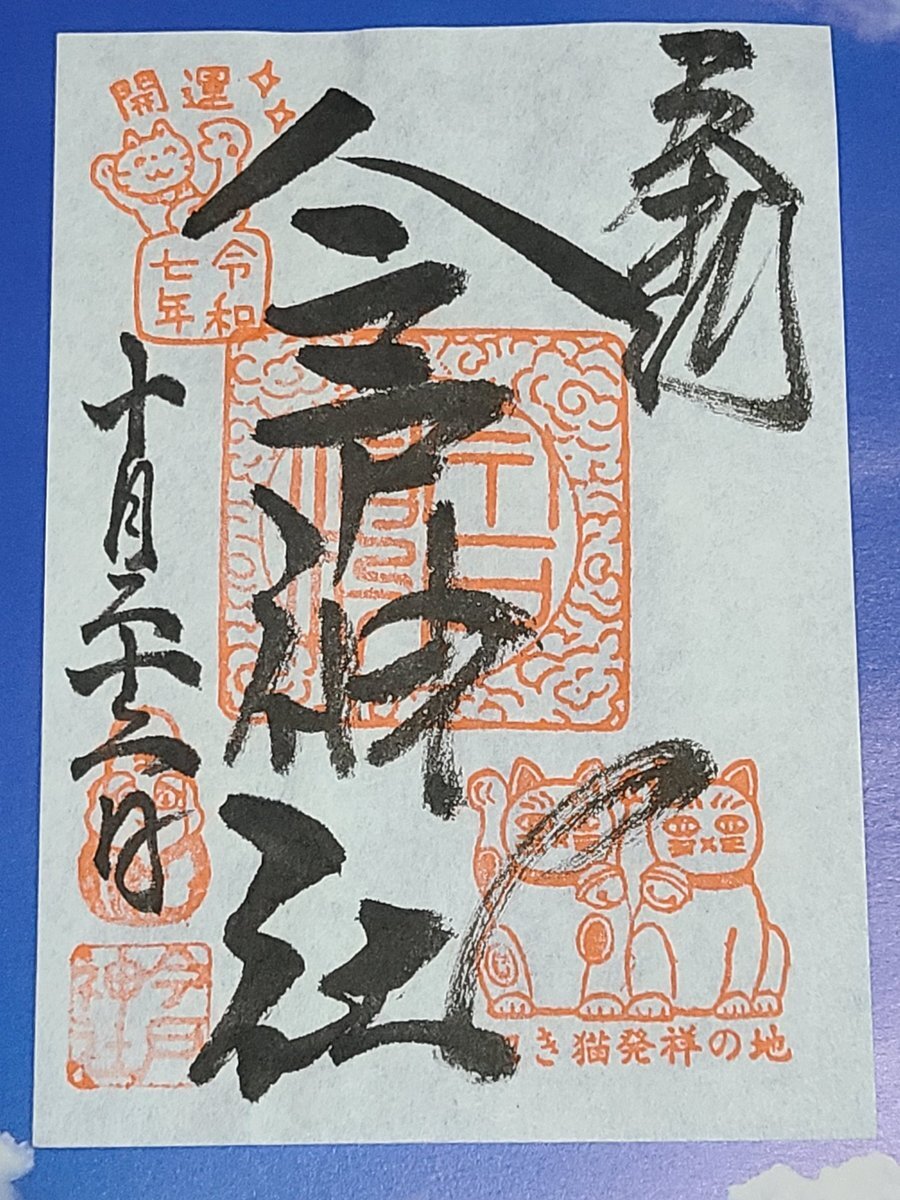 奉拝
今戸神社
開運
令和
七年
十月二十二日
招き猫発祥の地
今戸
神社